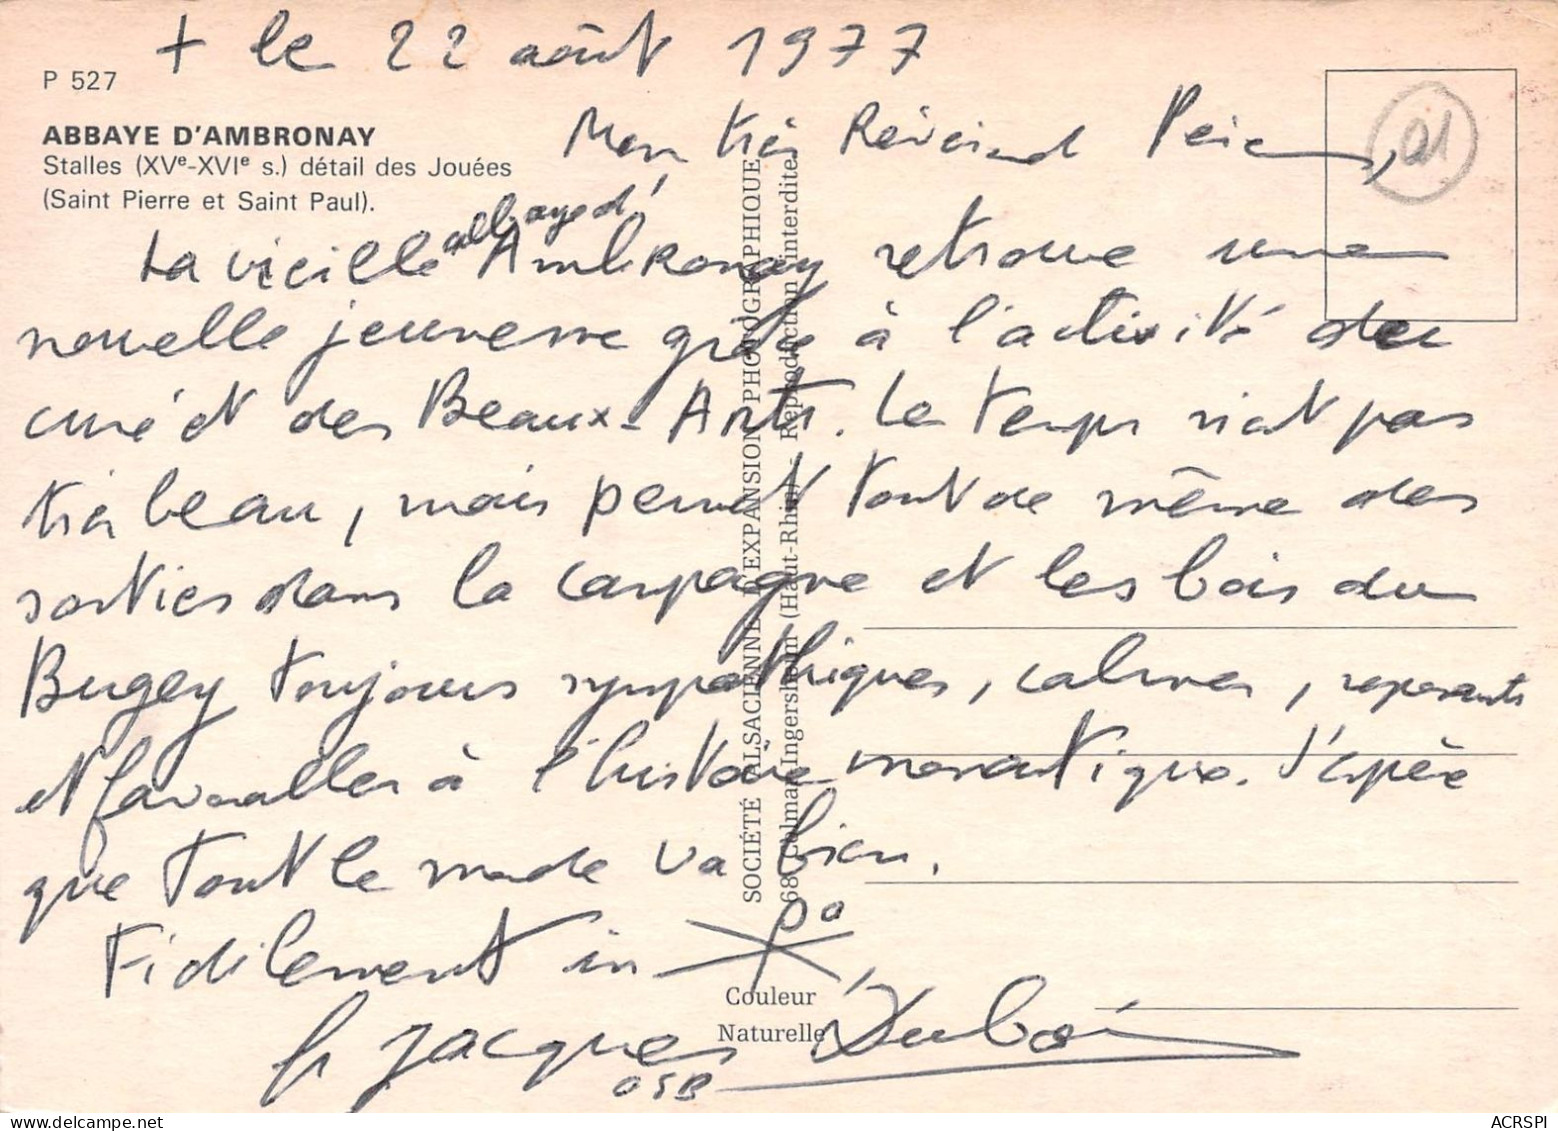 + le 22 août 1977
P 527
ABBAYE D'AMBRONAY
Stalles (XVe-XVIe s.) détail des Jouées
(Saint Pierre et Saint Paul).
01
Mon très Révérend Père,
La vieille abbaye d'Ambronay retrouve une
nouvelle jeunesse grâce à l'activité du
curé et des Beaux-Arts. Le temps n'est pas
très beau, mais permet tout de même des
sorties dans la campagne et les bois du
Bugey toujours sympathiques, calmes, reposants
et favorables à l'histoire monastique. J'espère
que tout le monde va bien.
Fidèlement in Xpo,
fr Jacques Dubois
OSB
SOCIÉTÉ ALSACIENNE D'EXPANSION PHOTOGRAPHIQUE
68 Colmar-Ingersheim (Haut-Rhin) - Reproduction interdite
Couleur
Naturelle
ACRSPI